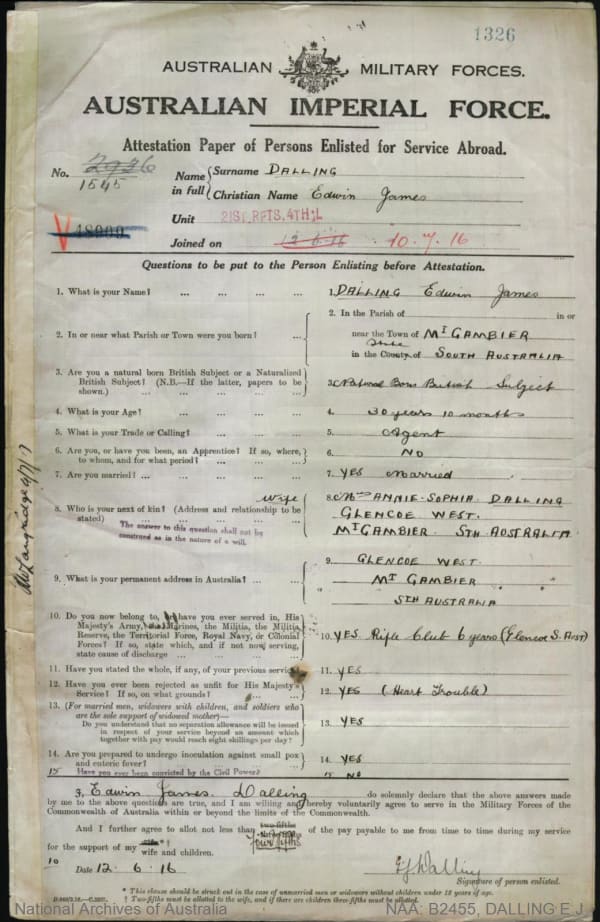 1326
AUSTRALIAN MILITARY FORCES.
AUSTRALIAN IMPERIAL FORCE.
Attestation Paper of Persons Enlisted for Service Abroad.
No. 2926
1545
Name in full { Surname DALLING
Christian Name Edwin James
Unit 21ST. RFTS. 4TH. L
V 48909
Joined on 12.6.16 10.7.16
Questions to be put to the Person Enlisting before Attestation.
1. What is your Name? ... ... ... ... 1. DALLING Edwin James
2. In or near what Parish or Town were you born? ... 2. In the Parish of in or
near the Town of MT GAMBIER
State
in the County of SOUTH AUSTRALIA
3. Are you a natural born British Subject or a Naturalized
British Subject? (N.B.—If the latter, papers to be
shown.) ... ... ... ... 3. Natural Born British Subject
4. What is your Age? ... ... ... ... 4. 30 years 10 months
5. What is your Trade or Calling? ... ... ... 5. Agent
6. Are you, or have you been, an Apprentice? If so, where,
to whom, and for what period? ... ... 6. NO
7. Are you married? ... ... ... ... 7. YES Married
8. Who is your next of kin? (Address and relationship to be
stated) ... ... ... ...
Wife
The answer to this question shall not be
construed as in the nature of a will.
8. Mrs ANNIE. SOPHIA. DALLING
GLENCOE WEST.
MT GAMBIER. STH. AUSTRALIA.
9. What is your permanent address in Australia? ... ... 9. GLENCOE WEST.
" MT GAMBIER "
STH AUSTRALIA
10. Do you now belong to, or have you ever served in, His
Majesty's Army, the Marines, the Militia, the Militia
Reserve, the Territorial Force, Royal Navy, or Colonial
Forces? If so, state which, and if not now serving,
state cause of discharge ... ... ... 10. YES Rifle Club 6 years (Glencoe S. Aust)
11. Have you stated the whole, if any, of your previous service? 11. YES
12. Have you ever been rejected as unfit for His Majesty's
Service? If so, on what grounds? ... ... 12. YES (Heart Trouble)
13. (For married men, widowers with children, and soldiers who
are the sole support of widowed mother)—
Do you understand that no separation allowance will be issued
in respect of your service beyond an amount which
together with pay would reach eight shillings per day? 13. YES
14. Are you prepared to undergo inoculation against small pox
and enteric fever? ... ... ... ... 14. YES
15 Have you ever been convicted by the Civil Power? 15 NO
I, Edwin James Dalling do solemnly declare that the above answers made
by me to the above questions are true, and I am willing and hereby voluntarily agree to serve in the Military Forces of the
Commonwealth of Australia within or beyond the limits of the Commonwealth.
And I further agree to allot not less than two-fifths of the pay payable to me from time to time during my service
Four fifths
for the support of my wife and children.
10
Date 12.6.16
EJ Dalling
Signature of person enlisted.
* This clause should be struck out in the case of unmarried men or widowers without children under 18 years of age.
† Two-fifths must be allotted to the wife, and if there are children three-fifths must be allotted.
National Archives of Australia
NAA: B2455, DALLING E J